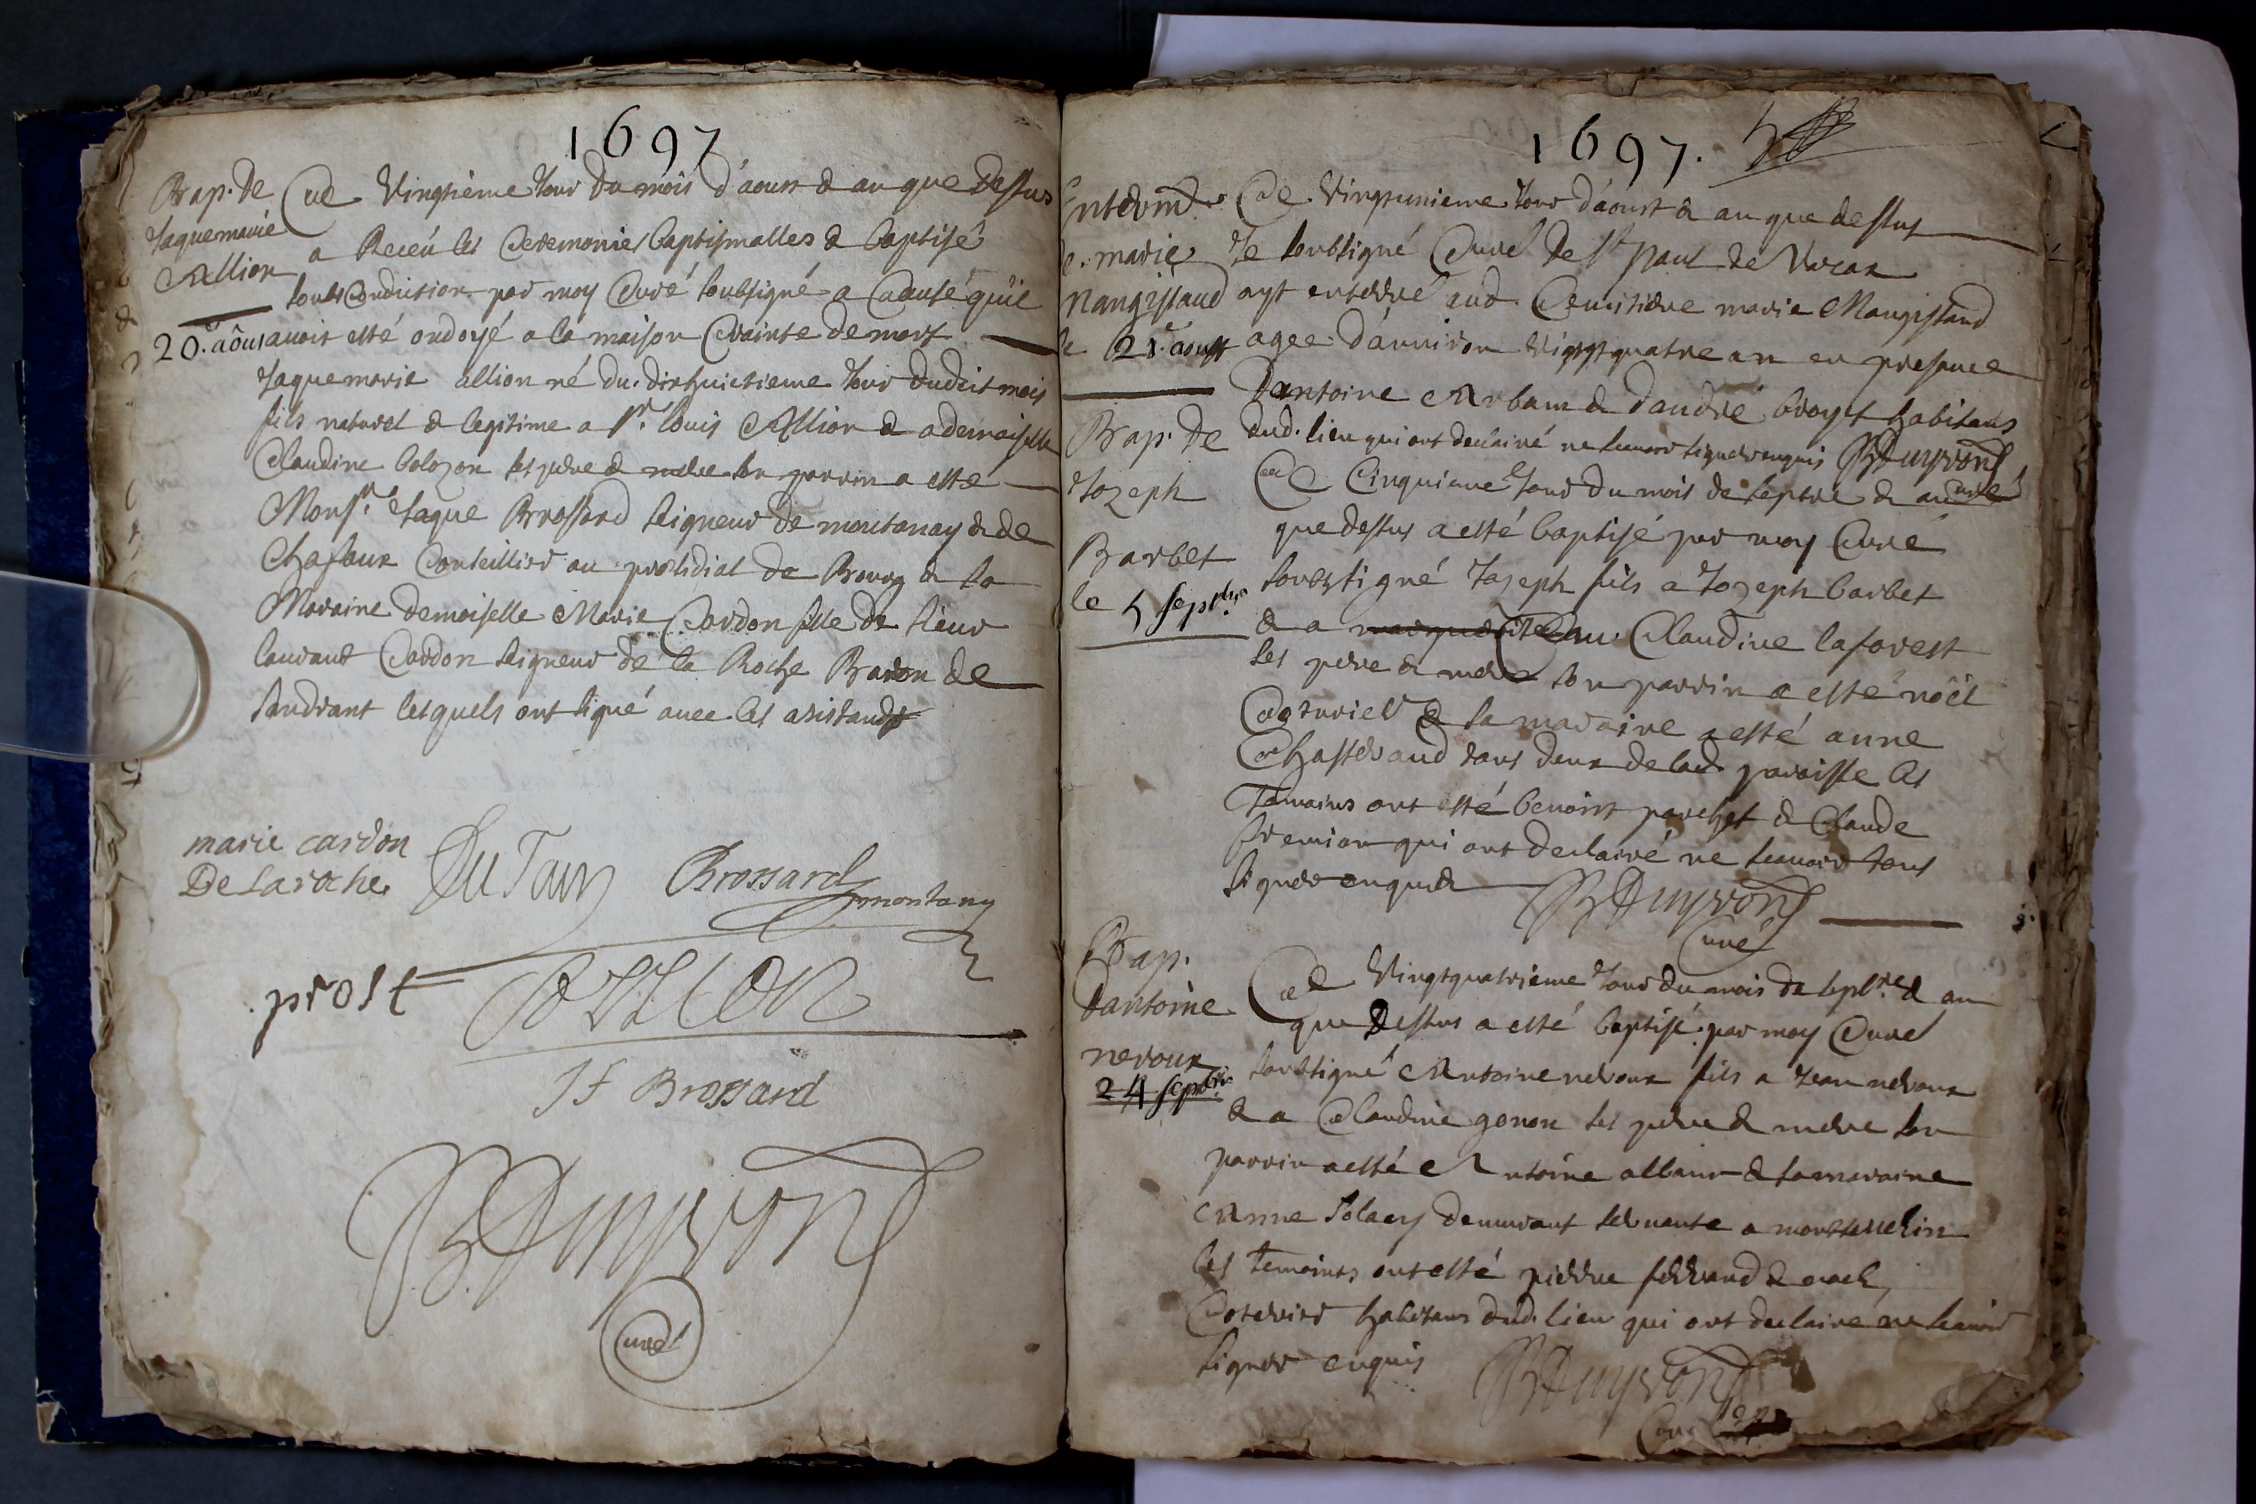 1697
Bap. de
Jaquemarie
Allion
20.e aôust
Ce Vingtième Jour du mois d'aoust & an que dessus
a Receu les Ceremonies baptismalles & baptisé
soubs Condition par moy Curé soubsigné a Cause qu'il
avoit esté ondoyé a la maison Crainte de mort
Jaquemarie allion né du dixhuictieme Jour dudict mois
fils naturel & legitime a Sr. Louis Allion & a demoiselle
Claudine bolozon ses pere & mere son parrin a esté
Monsr. Jaque Brossard seigneur de montanay & de
Chafoux Conseillier au presidial de Bourg & sa
Maraine demoiselle Marie Cardon fille de sieur
laurant Cardon seigneur de la Roche Baron de
sandrant lesquels ont signé avec les asistands
marie cardon
De Laroche
Brossard
montany
prost
ALLION
Jf Brossard
BDuyvont
Curé
1697.
Enterem.
de marie
Mangistaud
le 21.e aoust
Ce Vingtunieme Jour d'aoust & an que dessus
Je soubsigné Curé de St paul de Varax
ayt enterré aud. Cemitiere marie Mangistaud
agee d'anviron vingtquatre an en presance
Dantoine Arbam & d'andré broyst habitans
dud. lieu qui ont declairé ne scavoir signer enquis BDuyvont
Curé
Bap. de
Jozeph
Barbet
le 5 septbre
Ce Cinquieme Jour du mois de septre & an
que dessus a esté baptisé par moy Curé
soubsigné Jozeph fils a Jozeph barbet
& a Claudine laforest
ses pere & mere son parrin a esté nöël
& sa maraine a esté anne
Chasteraud tous deux de lad. paroisse les
Temoins ont esté benoist parchet & Claude
premion qui ont declairé ne scauoir
signer enquis BDuyvont
Curé
Bap.
dantoine
neroux
24 septbre
Ce Vingtquatrieme Jour du mois de septbre & an
que Dessus a esté baptisé par moy Curé
soubsigné Antoine neroux fils a Jean neroux
& a Claudine gonon ses pere & mere son
parrin a esté Antoine albanr & sa maraine
Anne Solaey demeurant servante a
les temoins ont esté pierre ferrand &
habitans dud. lieu qui ont declairé ne scavoir
signer enquis BDuyvont
Curé